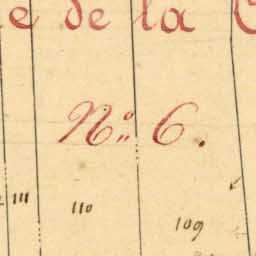 de la
No. 6.
111
110
109